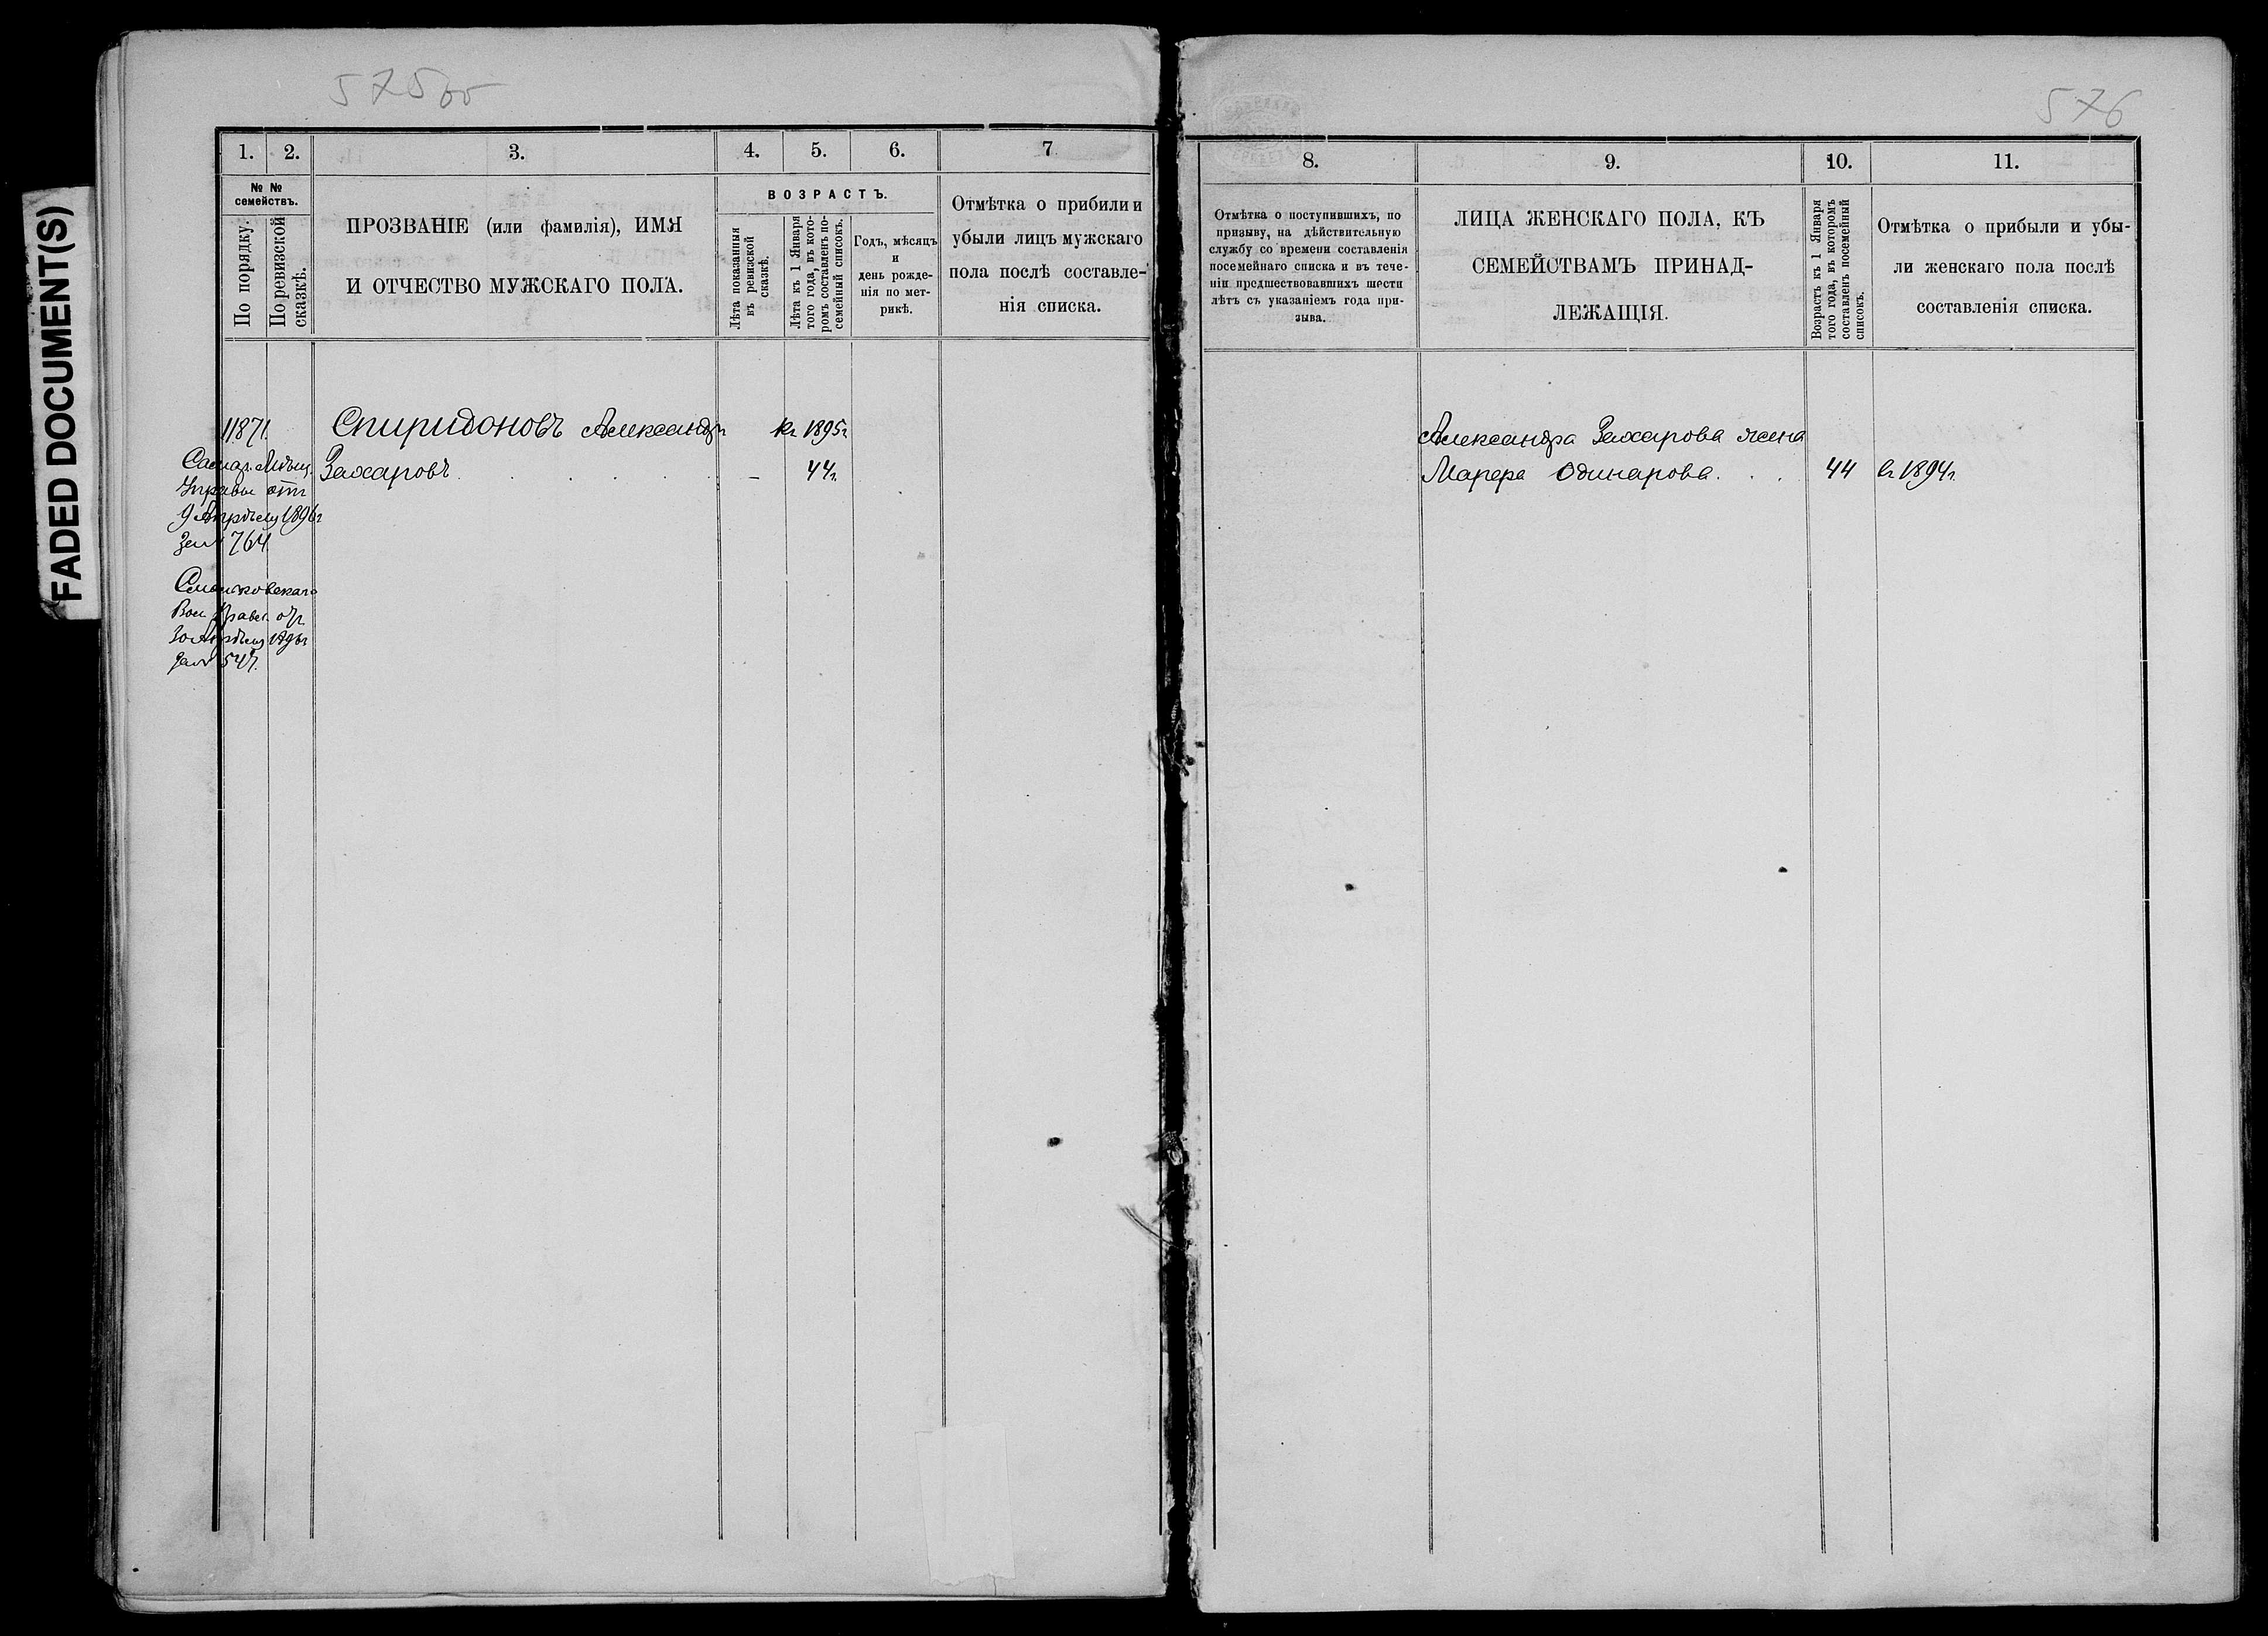 FADED DOCUMENT(S)
575об
1. 2. 3. 4. 5. 6. 7
№ №
семействъ.
По порядку.
По ревизской
сказкѣ.
ПРОЗВАНІЕ (или фамилія), ИМЯ
И ОТЧЕСТВО МУЖСКАГО ПОЛА.
ВОЗРАСТЪ.
Лѣта показанныя
въ ревизской
сказкѣ.
Лѣта къ 1 Января
того года, въ кото-
ромъ составленъ по-
семейный списокъ.
Годъ, мѣсяцъ
и
день рожде-
нія по мет-
рикѣ.
Отмѣтка о прибыли и
убыли лицъ мужскаго
пола послѣ составле-
нія списка.
11871. Спиридоновъ Александръ къ 1895г
Захаровъ . . . . . – 44г.
Самар. Мѣщ.
Управы отъ
9 Апрѣля 1896г
за № 764.
отъ
30 Апрѣля 1896г
за № 547.
576
8. 9. 10. 11.
Отмѣтка о поступившихъ, по
призыву, на дѣйствительную
службу со времени составленія
посемейнаго списка и въ тече-
ніи предшествовавшихъ шести
лѣтъ съ указаніемъ года при-
зыва.
ЛИЦА ЖЕНСКАГО ПОЛА, КЪ
СЕМЕЙСТВАМЪ ПРИНАД-
ЛЕЖАЩІЯ.
Возрастъ къ 1 Января
того года, въ которомъ
составленъ посемейный
списокъ.
Отмѣтка о прибыли и убы-
ли женскаго пола послѣ
составленія списка.
Александра Захарова жена
Одинарова. . . 44 въ 1894г.